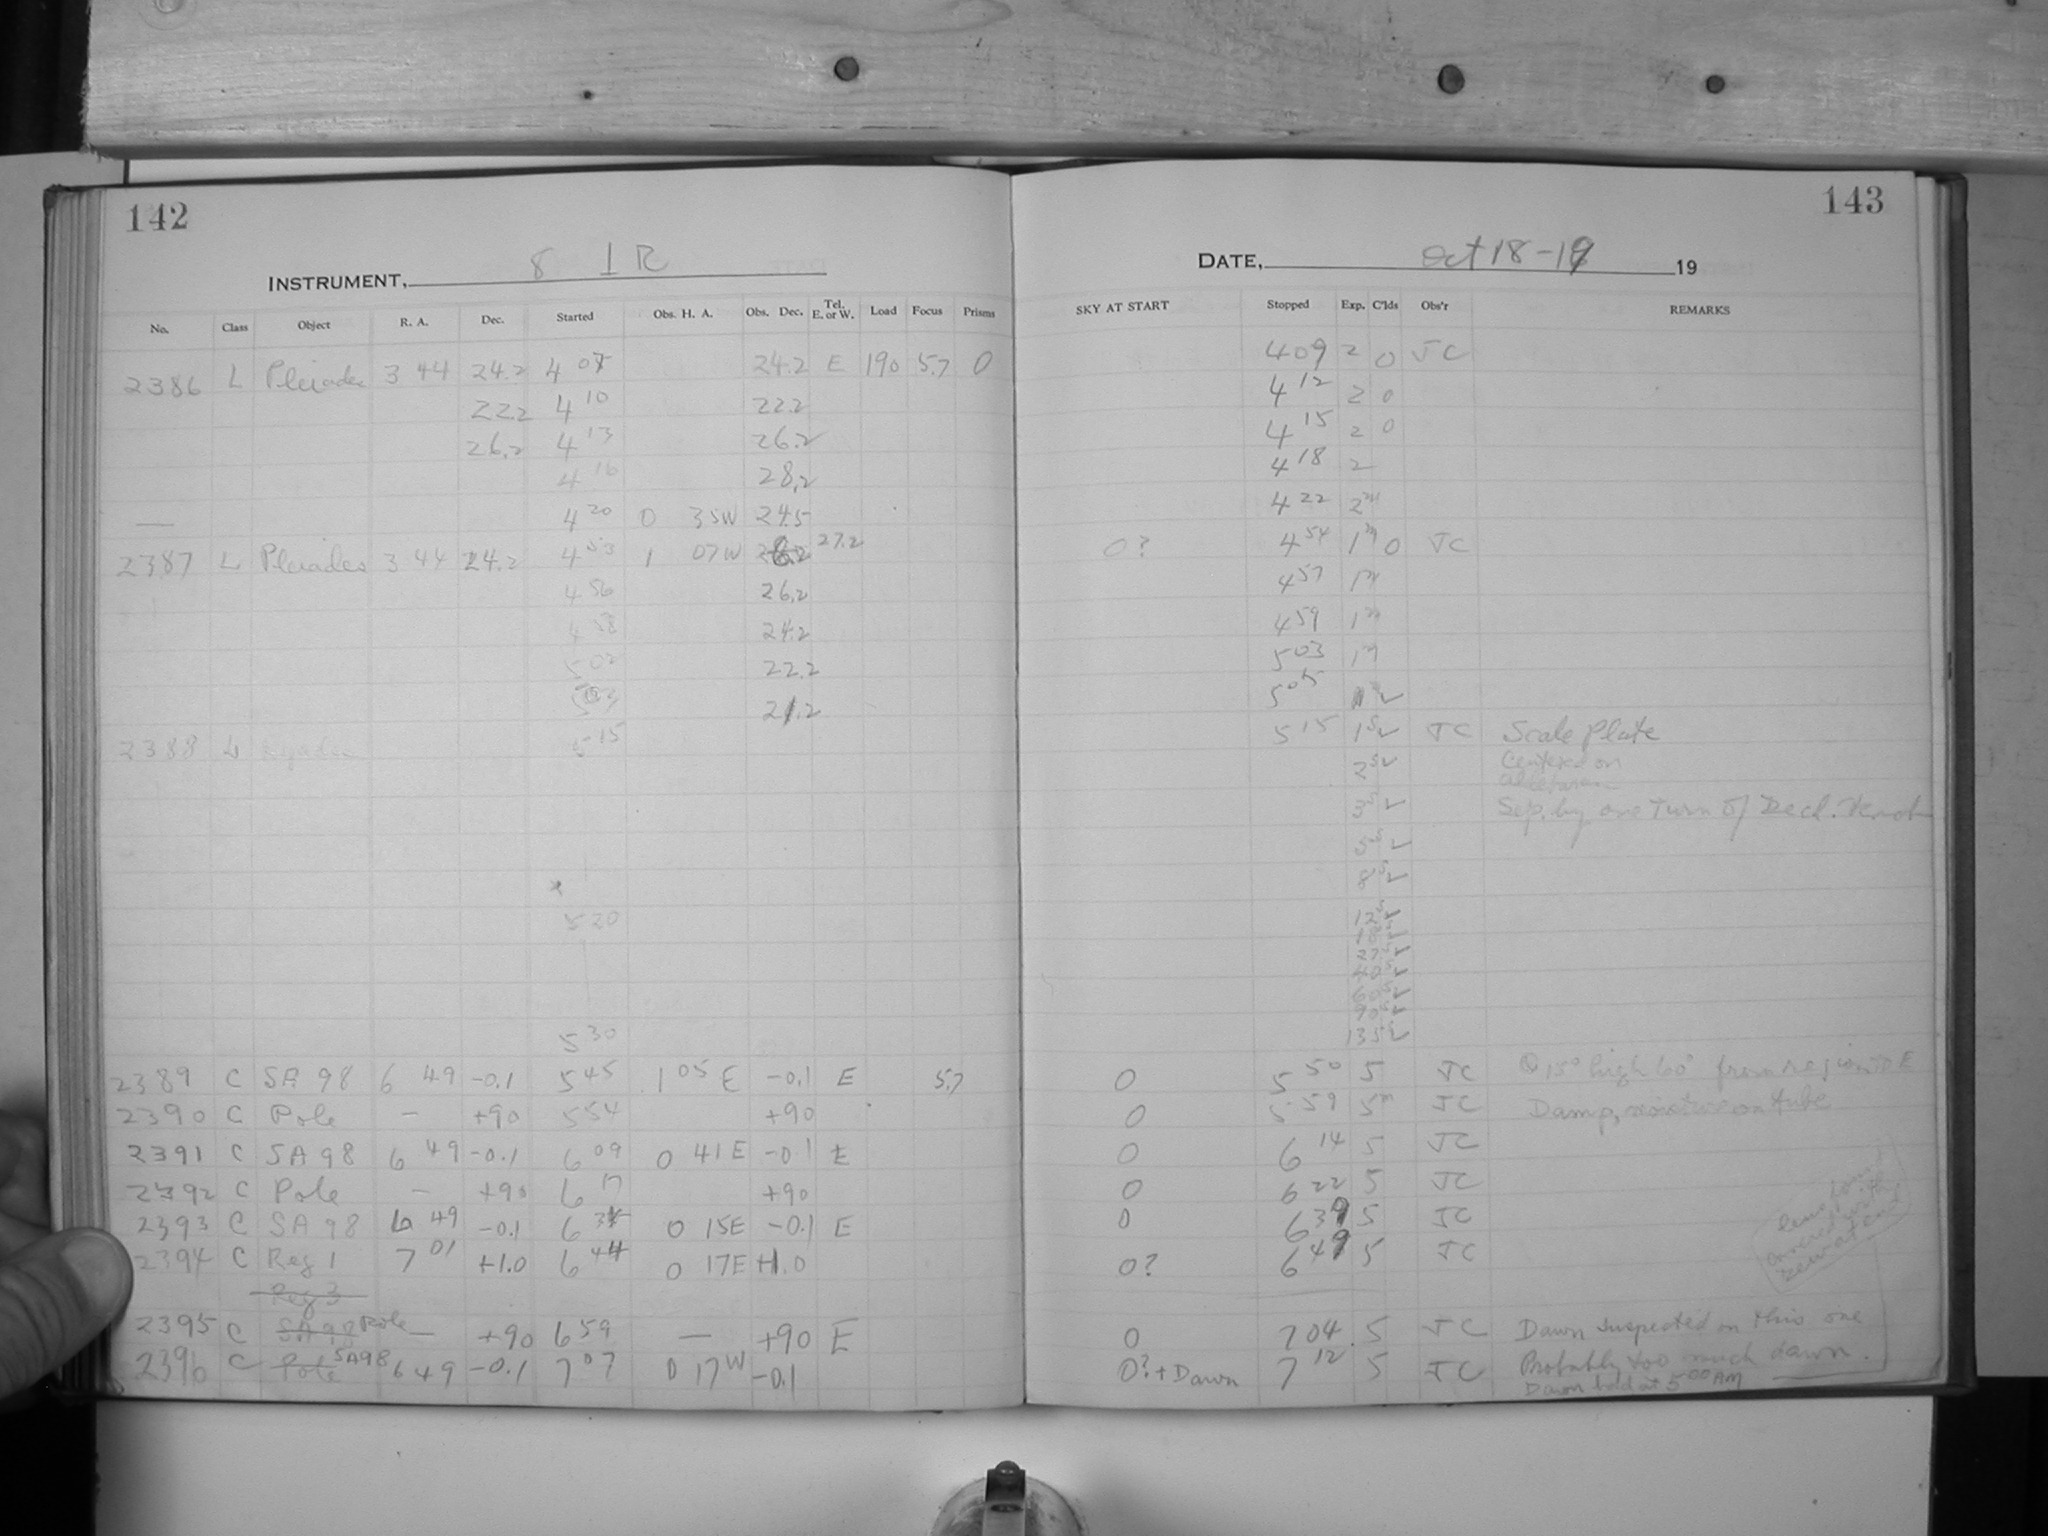 142
INSTRUMENT, 8 IR
No. Class Object R. A. Dec. Started Obs. H. A. Obs. Dec. Tel. E. or W. Load Focus Prisms
2386 L Pleiades 3 44 24.2 4 07 24.2 E 190 5.7 0
22.2 4 10 22.2
26.2 4 13 26.2
4 16 28.2
— 4 20 0 35W 24.5
2387 L Pleiades 3 44 24.2 4 53 1 07W 27.2
4 56 26.2
4 58 24.2
5 02 22.2
21.2
2388 L 5 15
5 20
5 30
2389 C SA 98 6 49 -0.1 5 45 1 05 E -0.1 E 5.7
2390 C Pole — +90 5 54 +90
2391 C SA 98 6 49 -0.1 6 09 0 41E -0.1 E
2392 C Pole — +90 6 17 +90
2393 C SA 98 6 49 -0.1 6 34 0 15E -0.1 E
2394 C Reg 1 7 01 +1.0 6 44 0 17E +1.0
Reg 3
2395 C SA 98 Pole — +90 6 59 — +90 E
2396 C Pole SA98 6 49 -0.1 7 07 0 17W -0.1
143
DATE, Oct 18-19 19
SKY AT START Stopped Exp. C'lds Obs'r REMARKS
4 09 2 0 JC
4 12 2 0
4 15 2 0
4 18 2
4 22 2m
0? 4 54 1m 0 JC
4 57 1m
4 59 1m
5 03 1m
5 05
5 15 1s✓ JC Scale Plate
2s✓ Centered on
3s✓ Sep. by one turn of Decl.
5s✓
8s✓
12s✓
135s✓
0 5 50 5 JC 15° high 60° from region to E
0 5 59 5m JC Damp, moisture on tube
0 6 14 5 JC
0 6 22 5 JC
0 6 39 5 JC
0? 6 49 5 JC
lens found
covered with
0 7 04 5 JC Dawn suspected on this one
0? + Dawn 7 12 5 JC Probably too much dawn.
Dawn bad at 5 00 AM